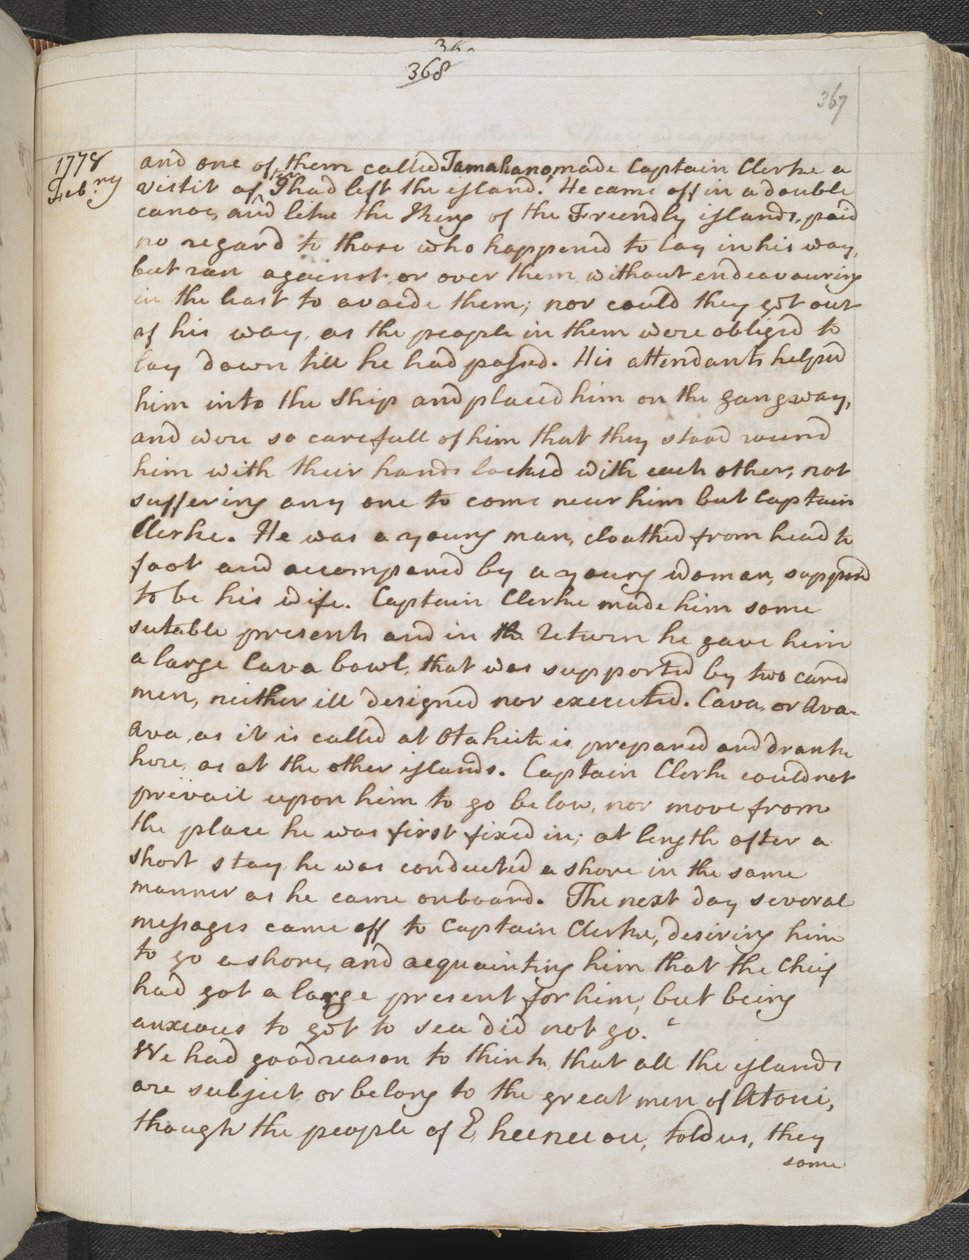 368
367
1778
Feb:ry
and one of them called Tamahano, made Captain Clerke a
vistit after I had left the island. He came off in a double
canoe, and like the King of the Friendly islands, paid
no regard to those who happened to lay in his way,
but ran against or over them without endeavouring
in the least to avoide them; nor could they get out
of his way, as the people in them were obliged to
lay down till he had passed. His attendants helped
him into the Ship and placed him on the gangway,
and were so carefull of him that they stood round
him with their hands locked with each other, not
suffering any one to come near him but Captain
Clerke. He was a young man, cloathed from head to
foot and accompaned by a young woman, supposed
to be his wife. Captain Clerke made him some
sutable presents and in return he gave him
a large Cava bowl, that was supported by two carved
men, neither ill designed nor executed. Cava, or Ava-
Ava, as it is called at Otaheite is prepared and drank
here, as at the other islands. Captain Clerke could not
prevail upon him to go below, nor move from
the place he was first fixed in; at length after a
short stay he was conducted a shore in the same
manner as he came onboard. The next day several
messages came off to Captain Clerke, desiring him
to go a shore, and acquainting him that the Chief
had got a large present for him; but being
anxious to get to sea did not go.
We had good reason to think, that all the islands
are subject or belong to the great men of Atoui,
though the people of Eheeneeou, told us, they
some